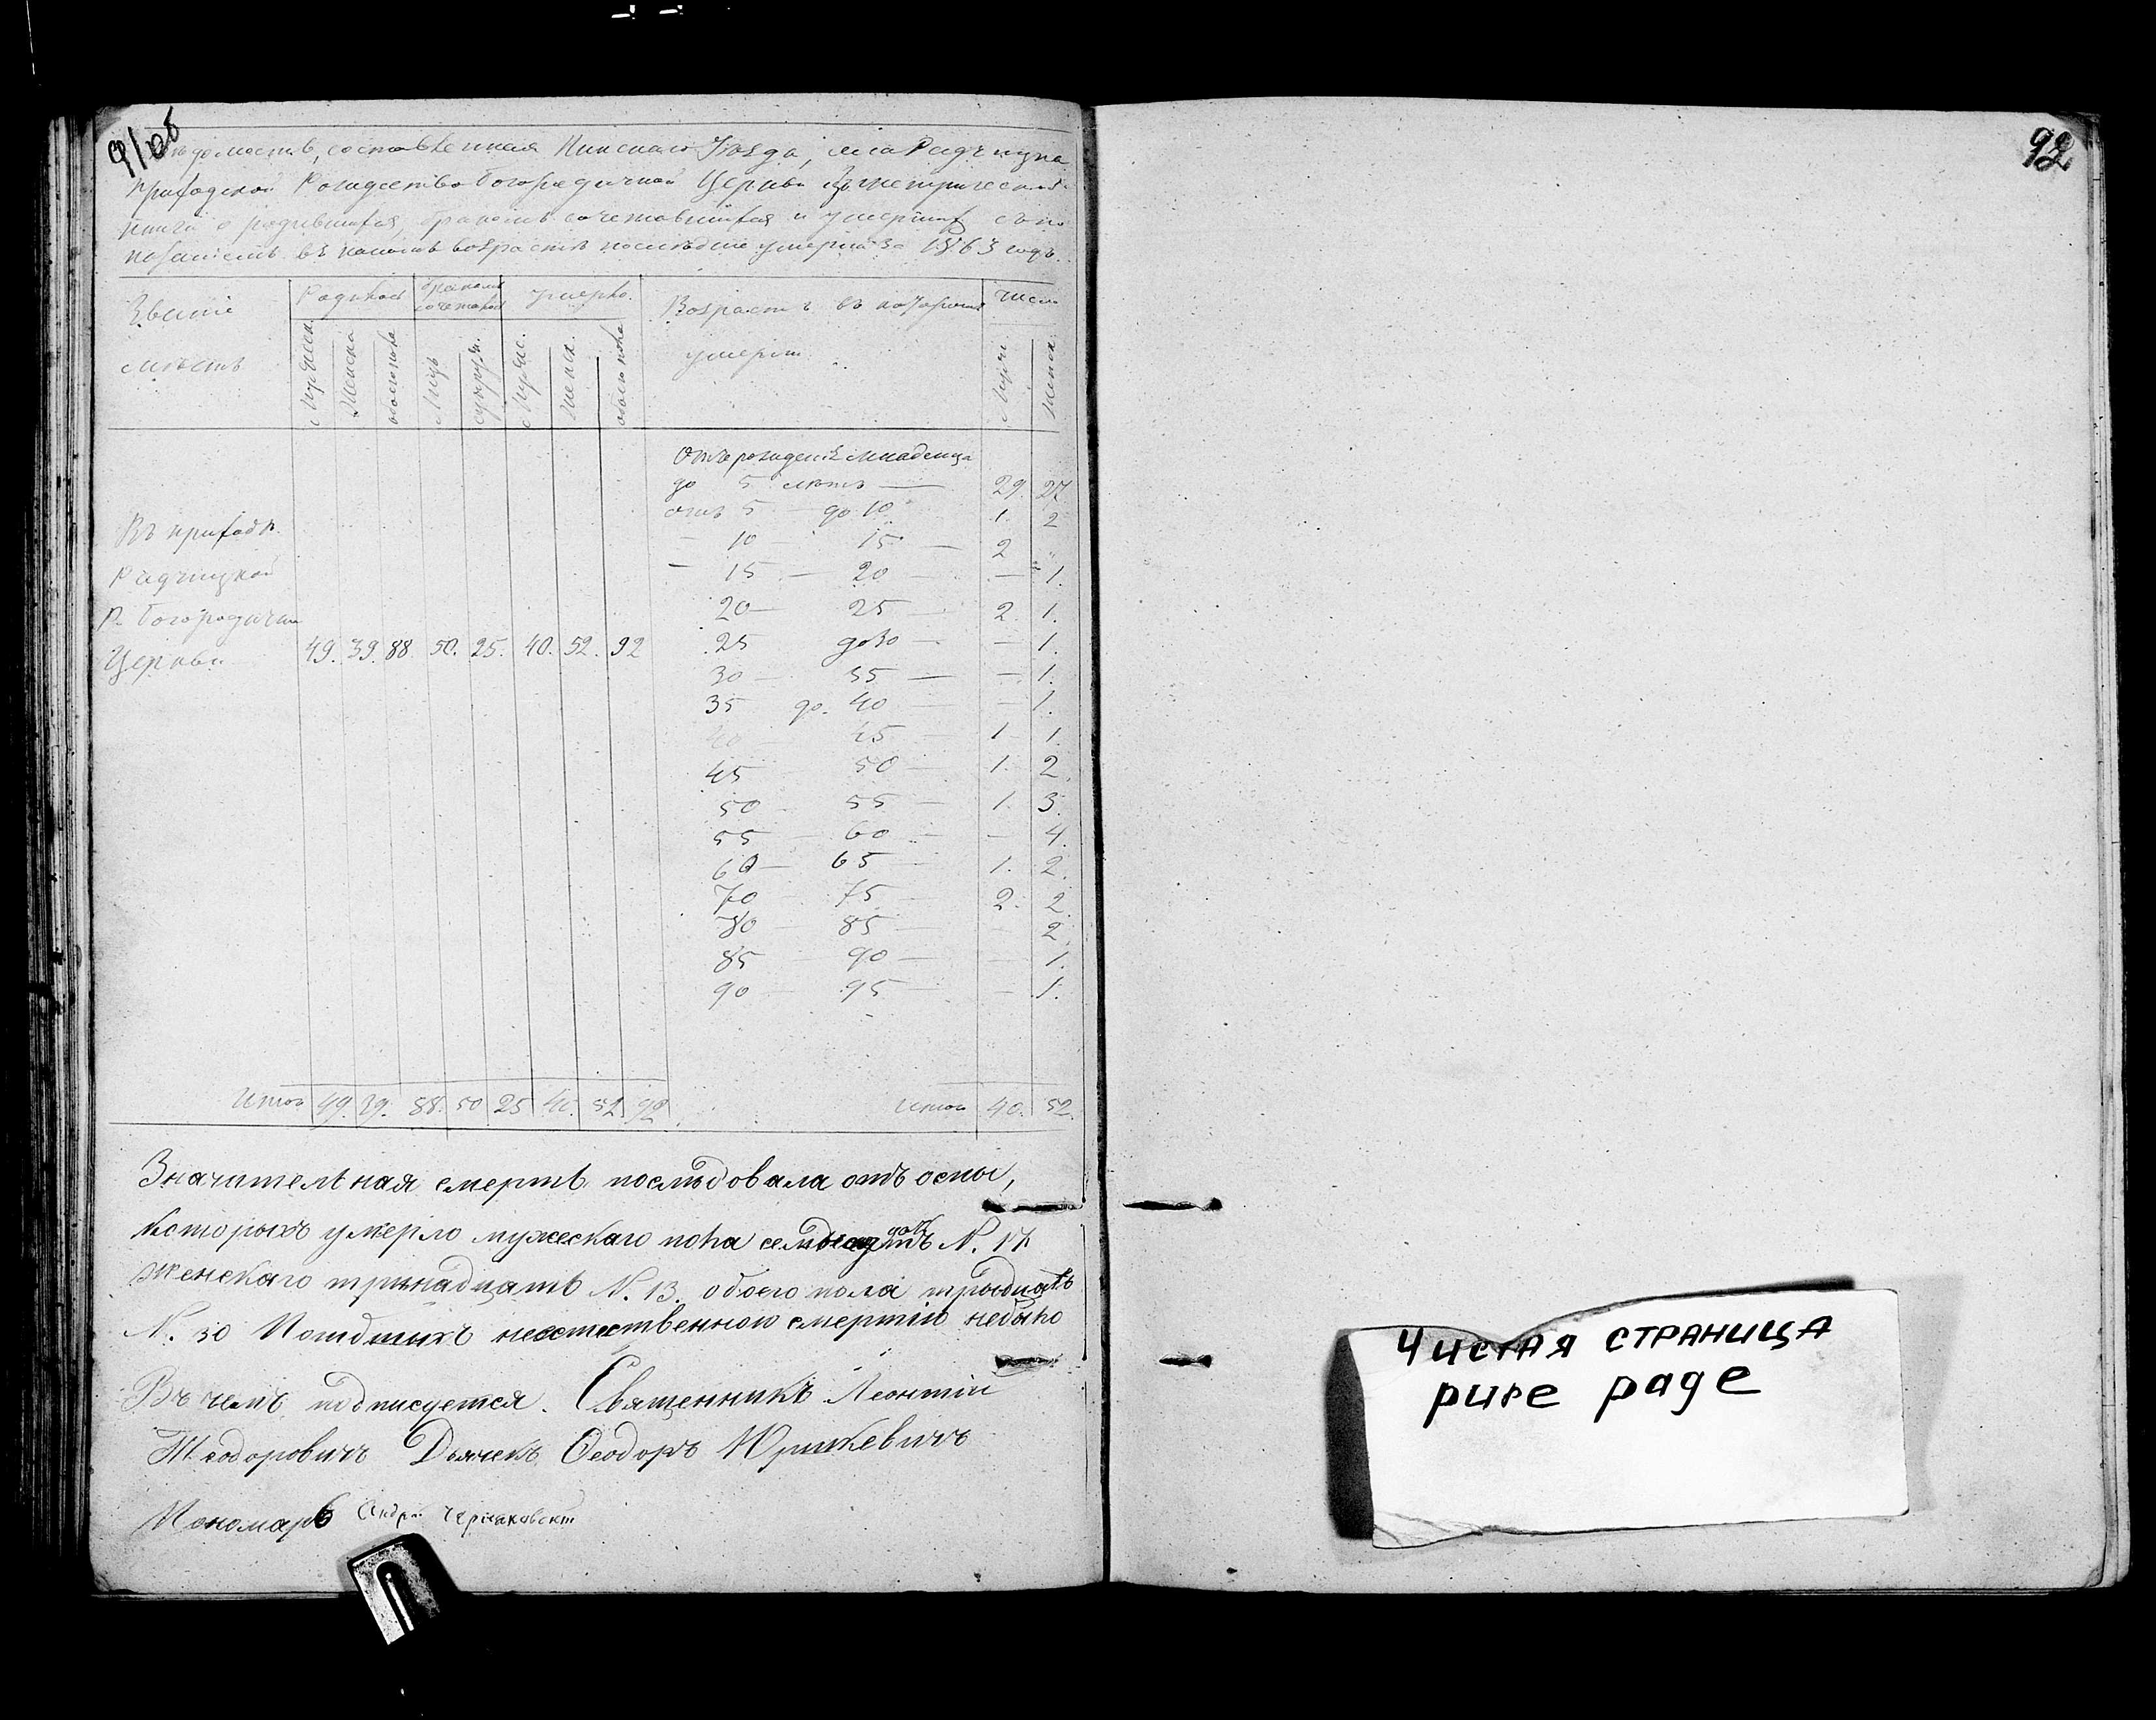 91 об
Ведомость, составленная Пинскаго Уѣзда, села Радчицка
Приходской Рождество богородичной Церкви Изъ метрической
книги о родившихся, бракомъ сочетавшихся и умершихъ съ по
казаніемъ въ какомъ возрастѣ послѣдніе умерли за 1863 годъ.
Званіе мѣстъ
Родилось
бракомъ сочеталось
умерло.
Возрастъ въ которомъ умерли
число
Мужеска
Женска
обоего пола
Лицъ
супруж.
Мужес.
женск.
обоего пола
Мужс.
женск.
Отъ рожденія младенца
до 5 лѣтъ — 29. 27
отъ 5 — до 10 1. 2
— 10 — 15 — 2 „
— 15 — 20 — 1.
20 — 25 2. 1.
25 до 30 — — 1.
30 — 35 — — 1.
35 до. 40 — 1.
40 45 — 1 1.
45 50 — 1. 2.
50 55 — 1. 3.
55 — 60 — — 4.
60 — 65 — 1. 2.
70 — 75 — 2. 2.
80 — 85 — 2.
85 — 90 — — 1.
90 — 95 — — 1.
Въ приходѣ
Радчицкой
Р. богородичн
Церкви 49. 39. 88 50. 25. 40. 52. 92
Итого 49. 39. 88. 50 25 40. 52. 92
Итого 40. 52.
Значительная смерть послѣдовала отъ оспы,
которыхъ умерло мужескаго пола N. 17
женскаго тринадцать N. 13. обоего пола тридцать
N. 30 неестественною смертію небыло
Въ чемъ подписуется. Священникъ Леонтій
Теодоровичъ Дьячекъ Ѳеодоръ Юршкевичъ
Пономарь Андрей
92
Чистая страница
pure page